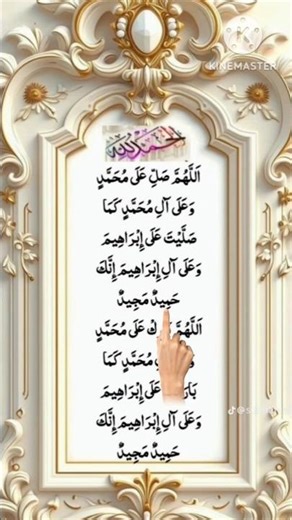 KINEMASTER
الحمد لله
اَللّٰهُمَّ صَلِّ عَلَى مُحَمَّدٍ
وَعَلَى آلِ مُحَمَّدٍ كَمَا
صَلَّيْتَ عَلَى إِبْرَاهِيمَ
وَعَلَى آلِ إِبْرَاهِيمَ إِنَّكَ
حَمِيدٌ مَجِيدٌ
اَللّٰهُمَّ عَلَى مُحَمَّدٍ
مُحَمَّدٍ كَمَا
عَلَى إِبْرَاهِيمَ
وَعَلَى آلِ إِبْرَاهِيمَ إِنَّكَ
حَمِيدٌ مَجِيدٌ